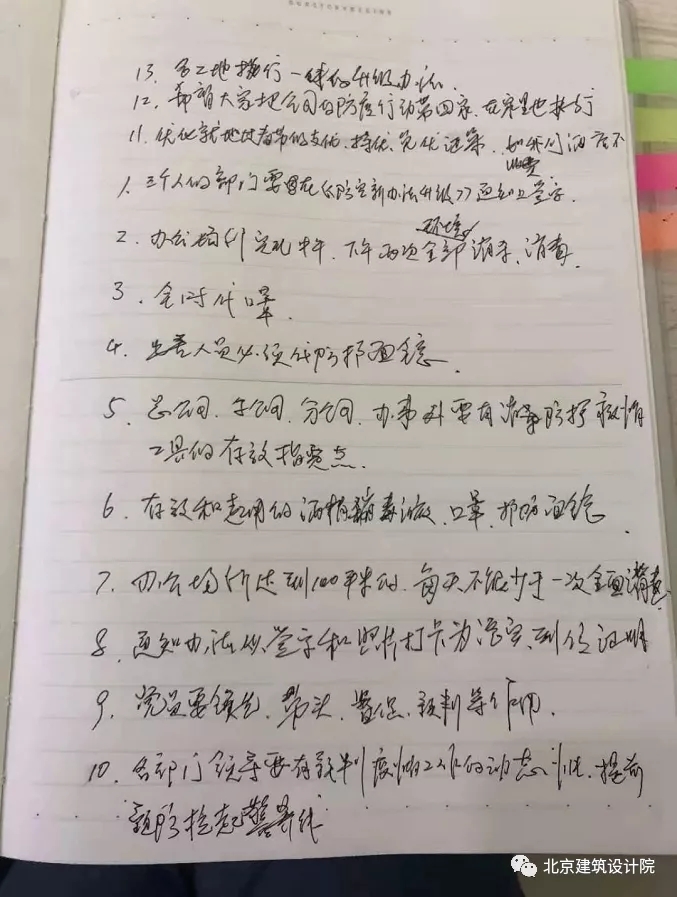 13. 各工地执行一样的升级办法.
12. 希望大家把公司的防疫行动带回家, 在家里也执行
11. 优化就地过春节的支付, 择优、完优选策.
1. 三个人的部门要在《防空新办法升级》通知上签字.
2. 办公场所实现上午、下午两次全部消杀、消毒.
环境
3. 全时代口罩
4. 出差人员必须代防护面镜.
5. 总公司、子公司、分公司、办事处要有消毒防护救护
工具的存放指定点.
6. 存放和起用的酒精消毒液、口罩、护防面镜
7. 办公场所达到100平米的, 每天不能少于一次全面消毒
8. 通知办法以签字和照片打卡为落实到位证明
9. 党员要领先、带头、、预判等作用.
10. 各部门领导要有预判疫情工作的动态, 提前
预防拉起警界线
北京建筑设计院